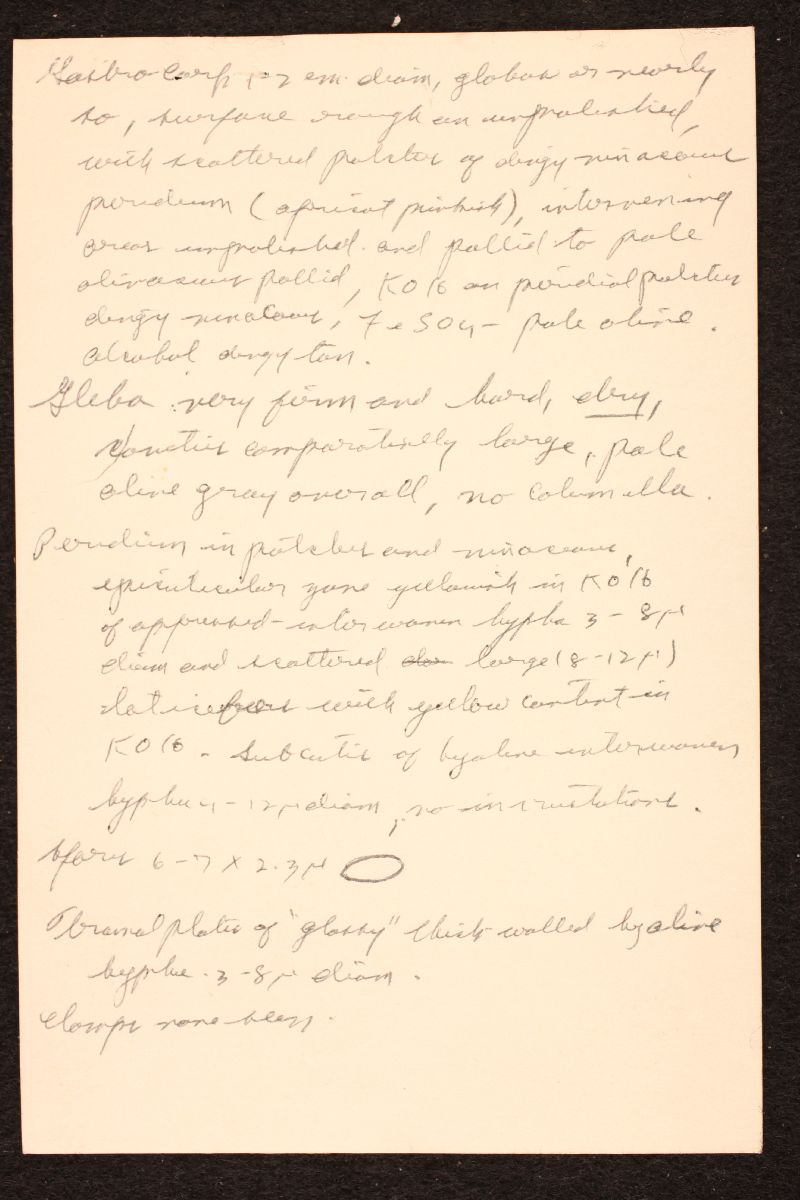 Gastrocarp 1-2 cm diam, globose or nearly
so, surface rough an unpolished,
with scattered patches of dingy vinaceous
peridium (apricot pinkish), intervening
areas unpolished and pallid to pale
olivaceous pallid, KOH on peridial patches
dingy vinaceous, FeSO4 - pale olive.
alcohol dingy tan.
Gleba very firm and hard, dry,
comparatively large, pale
olive gray overall, no columella.
Peridium in patches and vinaceous,
epicuticular zone yellowish in KOH
of appressed-interwoven hyphae 3-8µ
diam and scattered large (8-12µ)
laticifers with yellow content in
KOH. Subcutis of hyaline interwoven
hyphae 4-12µ diam, no incrustations.
Spores 6-7 x 2.3µ
Tramal plates of "glassy" thick-walled hyaline
hyphae 3-8µ diam.
Clamps none seen.